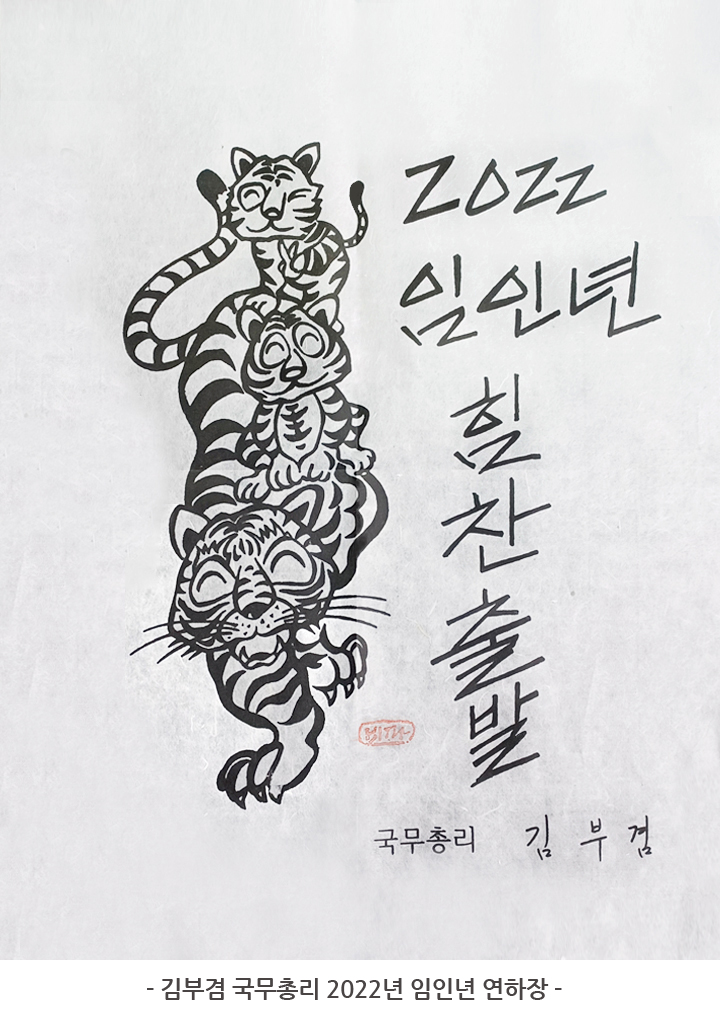 2022
임인년
힘
찬
출
발
국무총리 김부겸
- 김부겸 국무총리 2022년 임인년 연하장 -